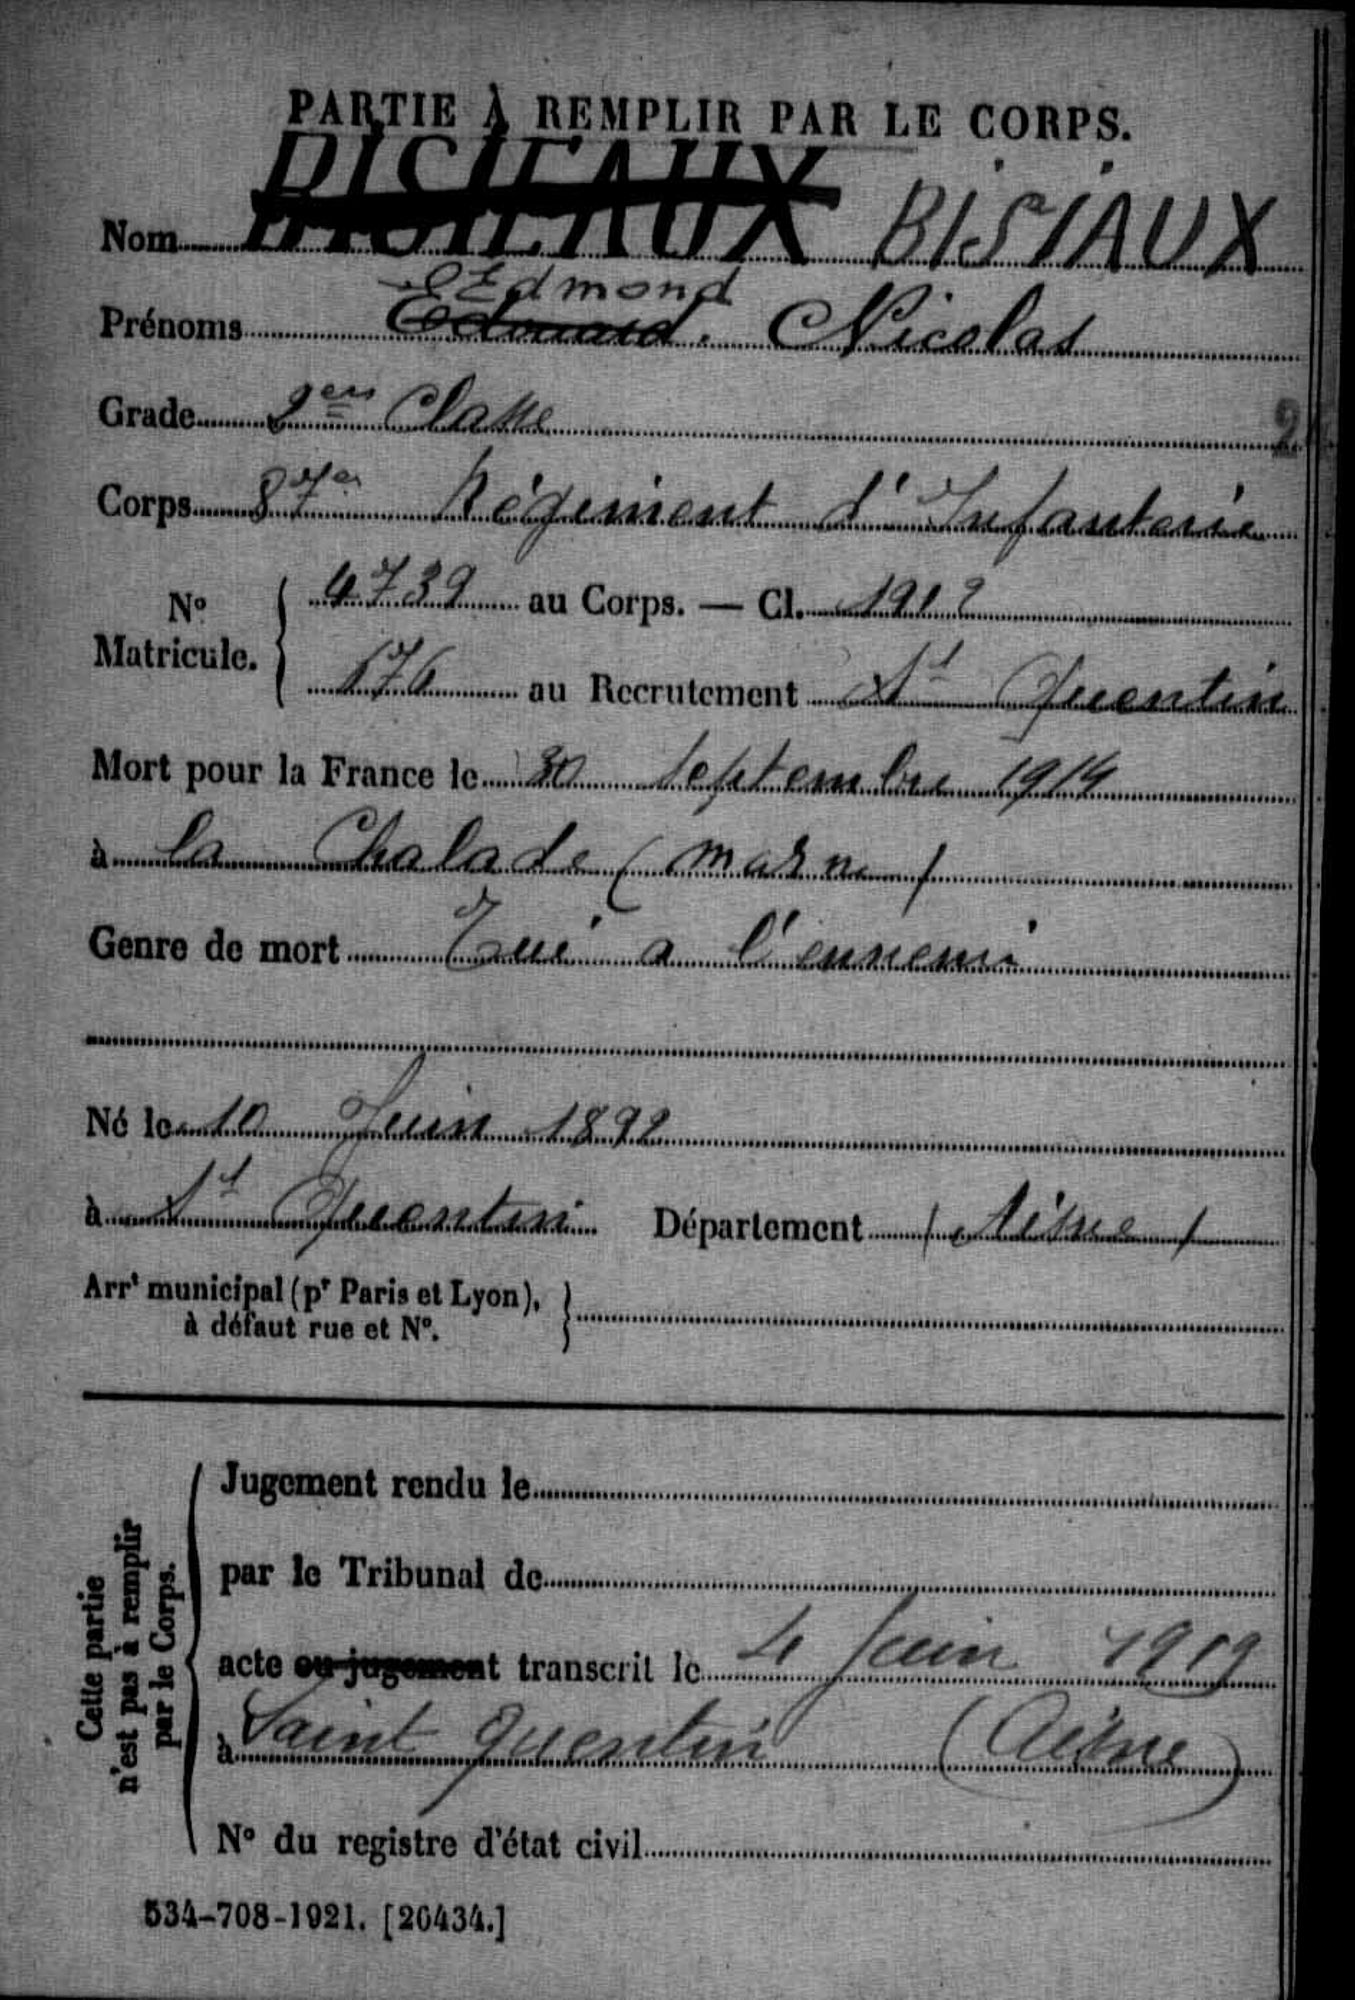 PARTIE À REMPLIR PAR LE CORPS.
Nom BISIEAUX BISIAUX
Edmond
Prénoms Edouard. Nicolas
Grade 2em Classe
2
Corps 87e Régiment d'Infanterie
No Matricule. { 4739 au Corps. — Cl. 1912
676 au Recrutement St Quentin
Mort pour la France le 30 Septembre 1914
à la Chalade (marne)
Genre de mort Tué a l'ennemi
Né le 10 Juin 1892
à St Quentin Département (Aisne)
Arrt municipal (pr Paris et Lyon), }
à défaut rue et No.
Cette partie
n'est pas à remplir
par le Corps.
Jugement rendu le
par le Tribunal de
acte ou jugement transcrit le 4 Juin 1919
à Saint Quentin (Aisne)
No du registre d'état civil
534-708-1921. [26434.]